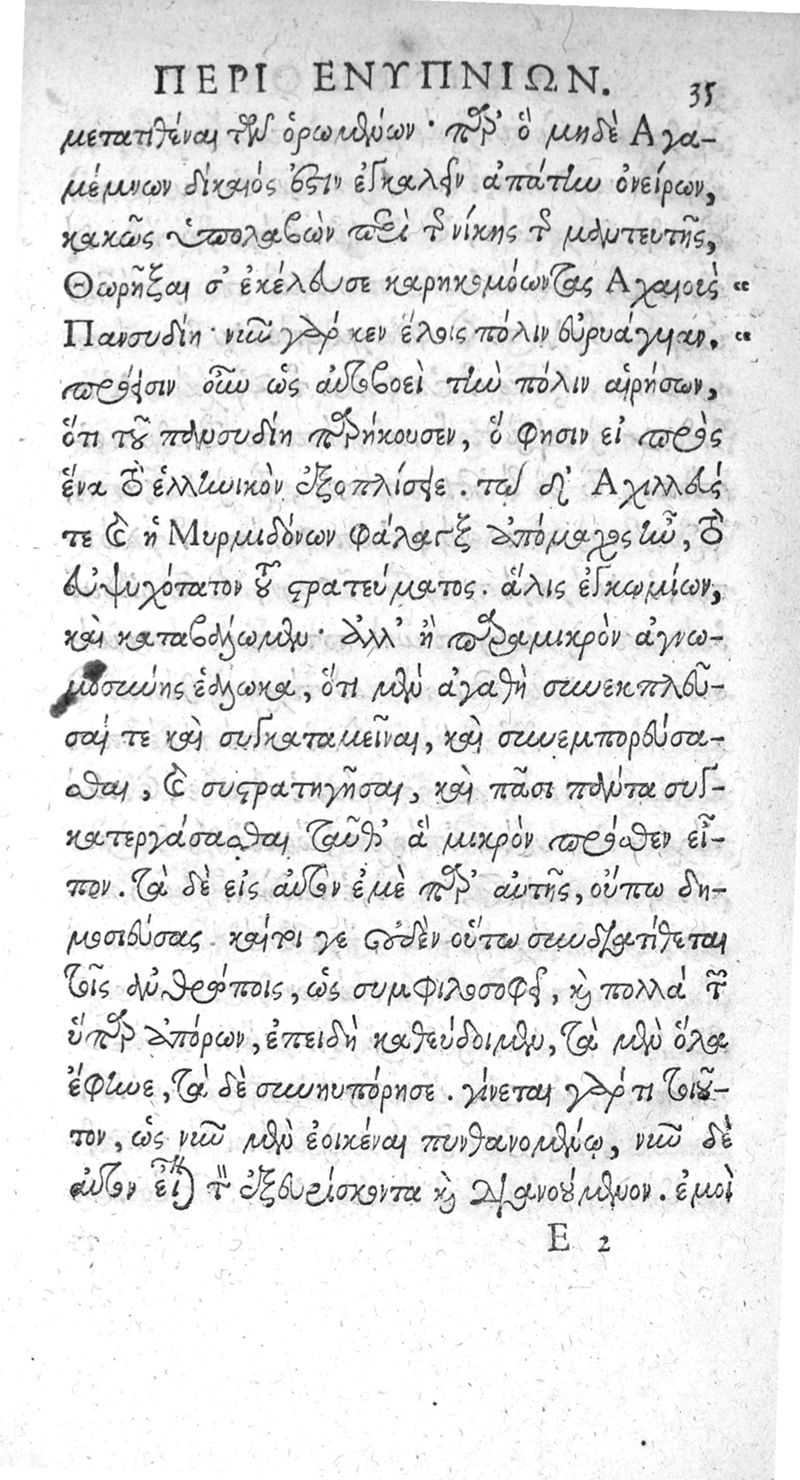 ΠΕΡΙ ΕΝΥΠΝΙΩΝ. 35
μετατιθέναι τῶν ὁρωμένων· παρ' ὃ μηδὲ Αγα-
μέμνων δίκαιός ἐστιν ἐγκαλεῖν ἀπάτην ὀνείρων,
κακῶς ὑπολαβὼν περὶ τῆς νίκης τῆς μαντευτῆς,
Θωρῆξαι σ' ἐκέλευσε καρηκομόωντας Αχαιοὺς "
Πανσυδίη· νῦν γὰρ κεν ἕλοις πόλιν εὐρυάγυιαν. "
πρόεισιν οὖν ὡς αὐτοβοεὶ τὴν πόλιν αἱρήσων,
ὅτι τοῦ πανσυδίη παρήκουσεν, ὅ φησιν εἰ πρὸς
ἕνα τὸ ἑλληνικὸν ἐξοπλίσειε. τῷ δ' Αχιλλεύς
τε καὶ ἡ Μυρμιδόνων φάλαγξ ἀπόμαχος ἦν, τὸ
εὐψυχότατον τοῦ στρατεύματος. ἅλις ἐγκωμίων,
καὶ καταβάλωμεν· ἀλλ' ἢ παραμικρὸν ἀγνω-
μοσύνης ἑάλωκα, ὅτι μὲν ἀγαθὴ συνεκπλεῦ-
σαί τε καὶ συγκαταμεῖναι, καὶ συνεμπορεύσα-
σθαι, καὶ συστρατηγῆσαι, καὶ πᾶσι πάντα συγ-
κατεργάσασθαι ταῦθ' ἃ μικρὸν πρόσθεν εἶ-
πον. τὰ δὲ εἰς αὐτὸν ἐμὲ παρ' αὐτῆς, οὔπω δη-
μοσιεύσας. καίτοι γε οὐδὲν οὕτω συνδιατίθεται
τοῖς ἀνθρώποις, ὡς συμφιλοσοφεῖ, καὶ πολλὰ τῶν
ὕπαρ ἀπόρων, ἐπειδὴ καθεύδοιμεν, τὰ μὲν ὅλα
ἔφηνε, τὰ δὲ συνηυπόρησε. γίνεται γάρ τι τοιοῦ-
τον, ὡς νῦν μὲν ἐοικέναι πυνθανομένῳ, νῦν δὲ
αὐτὸν εἶναι τὸν ἐξευρίσκοντα καὶ διανούμενον. ἐμοὶ
E 2